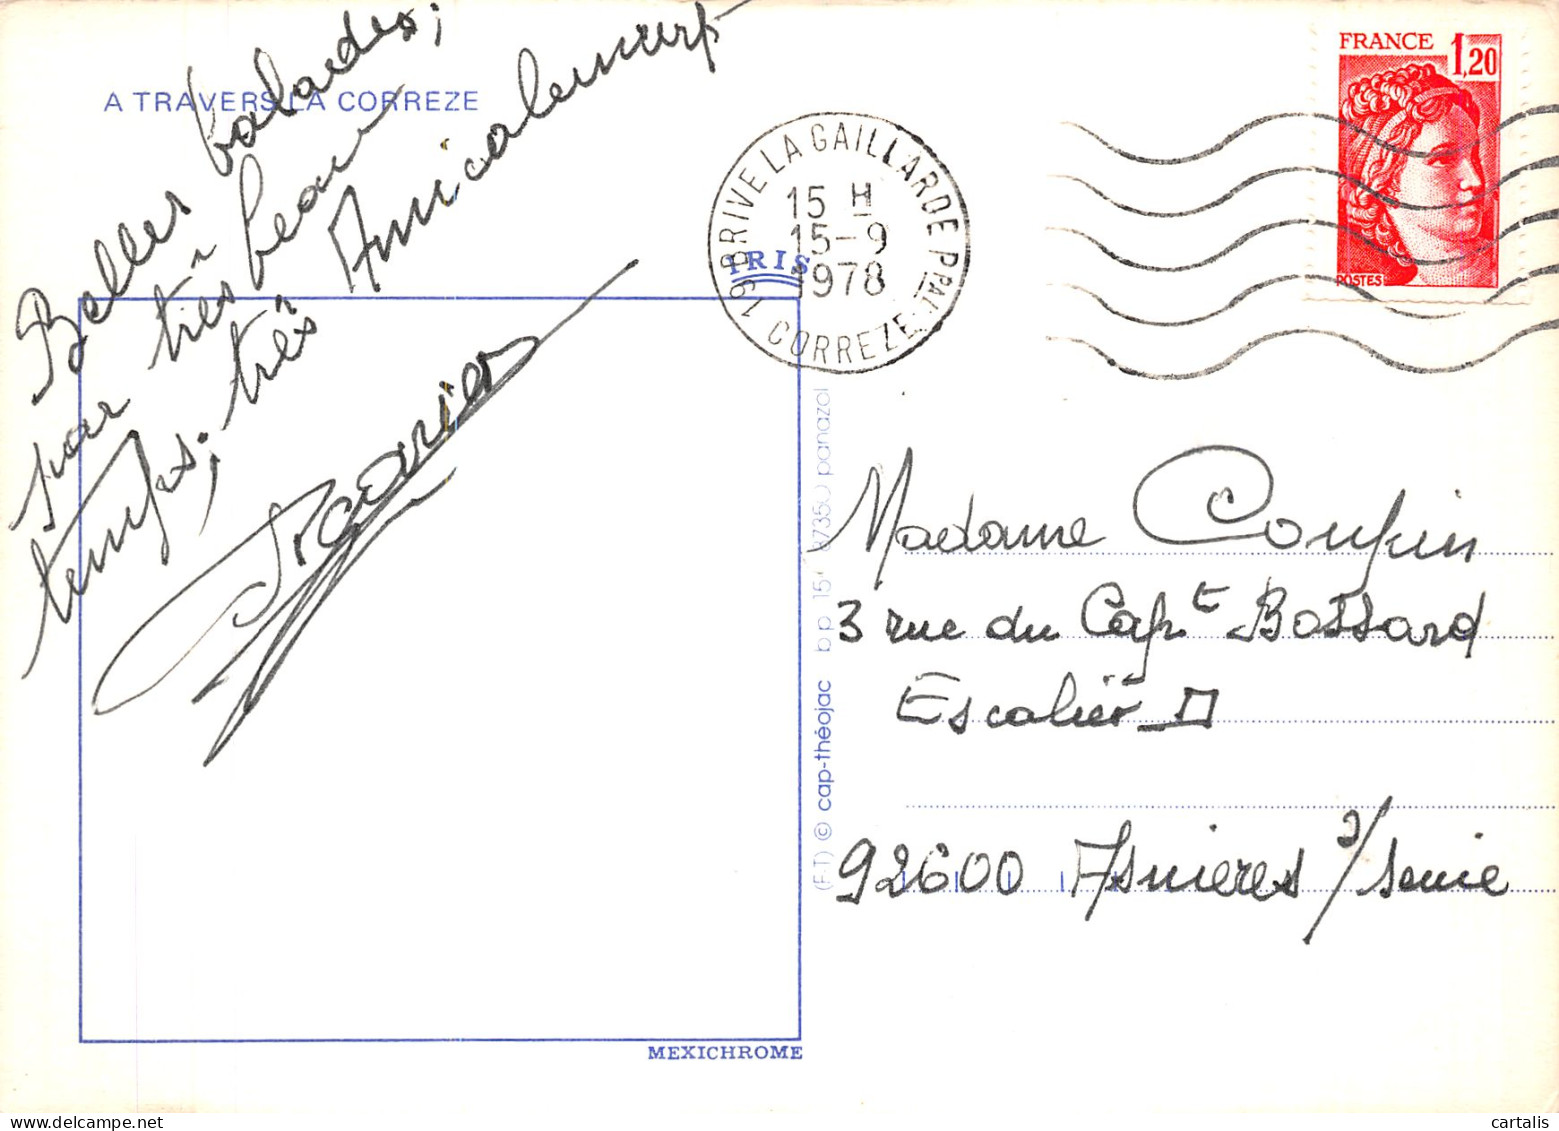 A TRAVERS LA CORREZE
Belles balades;
par très beau
temps; très Amicalement
IRIS
MEXICHROME
(F-T) © cap-théojac b p 15 panazol
19 BRIVE LA GAILLARDE Ppal
15 H
15-9
1978
CORREZE
FRANCE 1,20
POSTES
Madame Coupin
3 rue du Capt Bossard
Escalier D
92600 Asnieres s/seine
cartalis